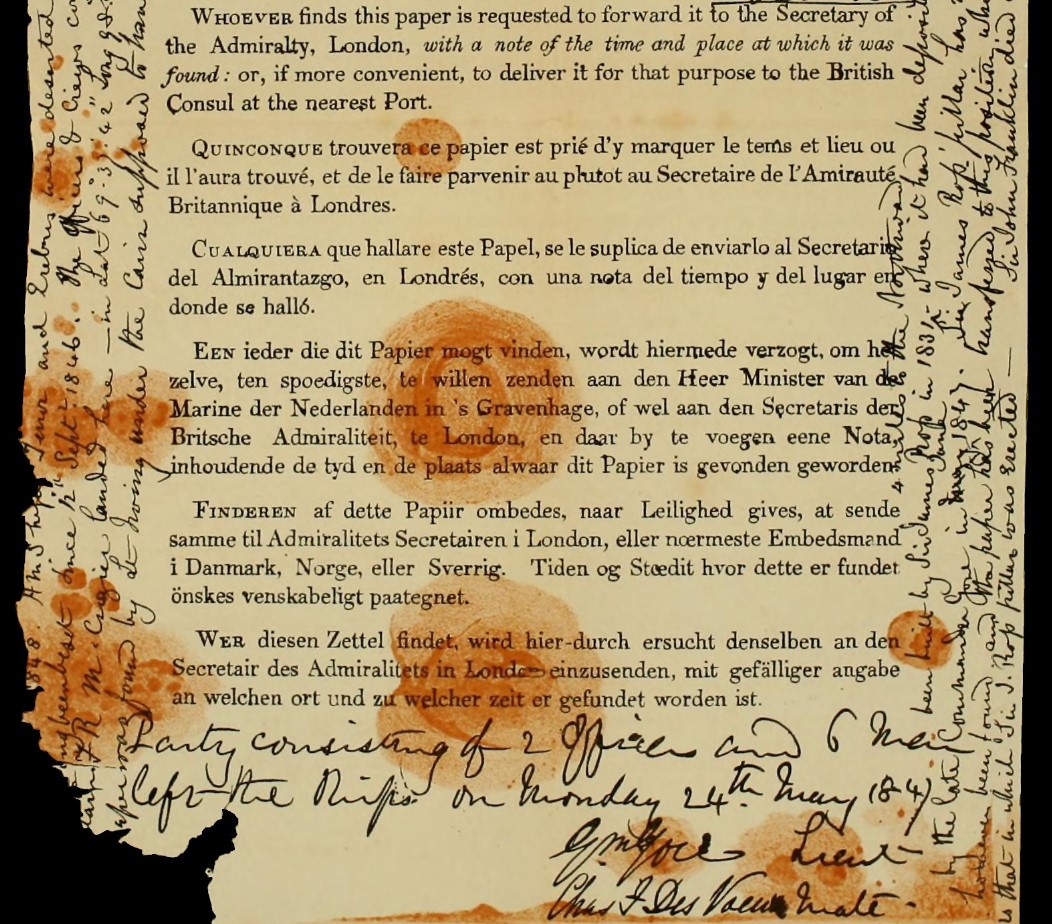 WHOEVER finds this paper is requested to forward it to the Secretary of
the Admiralty, London, with a note of the time and place at which it was
found: or, if more convenient, to deliver it for that purpose to the British
Consul at the nearest Port.
QUINCONQUE trouvera ce papier est prié d'y marquer le tems et lieu ou
il l'aura trouvé, et de le faire parvenir au plutot au Secretaire de l'Amirauté
Britannique à Londres.
CUALQUIERA que hallare este Papel, se le suplica de enviarlo al Secretario
del Almirantazgo, en Londrés, con una nota del tiempo y del lugar en
donde se halló.
EEN ieder die dit Papier mogt vinden, wordt hiermede verzogt, om het
zelve, ten spoedigste, te willen zenden aan den Heer Minister van de
Marine der Nederlanden in 's Gravenhage, of wel aan den Secretaris den
Britsche Admiraliteit, te London, en daar by te voegen eene Nota,
inhoudende de tyd en de plaats alwaar dit Papier is gevonden geworden
FINDEREN af dette Papiir ombedes, naar Leilighed gives, at sende
samme til Admiralitets Secretairen i London, eller nœrmeste Embedsmand
i Danmark, Norge, eller Sverrig. Tiden og Stœdit hvor dette er fundet
önskes venskabeligt paategnet.
WER diesen Zettel findet, wird hier-durch ersucht denselben an den
Secretair des Admiralitets in London einzusenden, mit gefälliger angabe
an welchen ort und zu welcher zeit er gefundet worden ist.
Party consisting of 2 Officers and 6 Men
left the Ships on Monday 24th May 1847
Gm Gore Lieut
Chas F Des Voeux Mate
1848. HMShips Terror and Erebus were deserted
been beset since 12th Sept. 1846. The Officers & Crews
F R M Crozier landed here — in Lat. 69° 37' 42" Long.
was found by Lt Irving under the Cairn supposed to have
been built by Sir James Ross in 1831 — where it had been deposited
4 miles to the Northward
by the late Commander Gore in May 1847. Sir James Ross' pillar has
however been found and the paper has been transferred to this position
is that in which Sir J. Ross pillar was erected — Sir John Franklin died